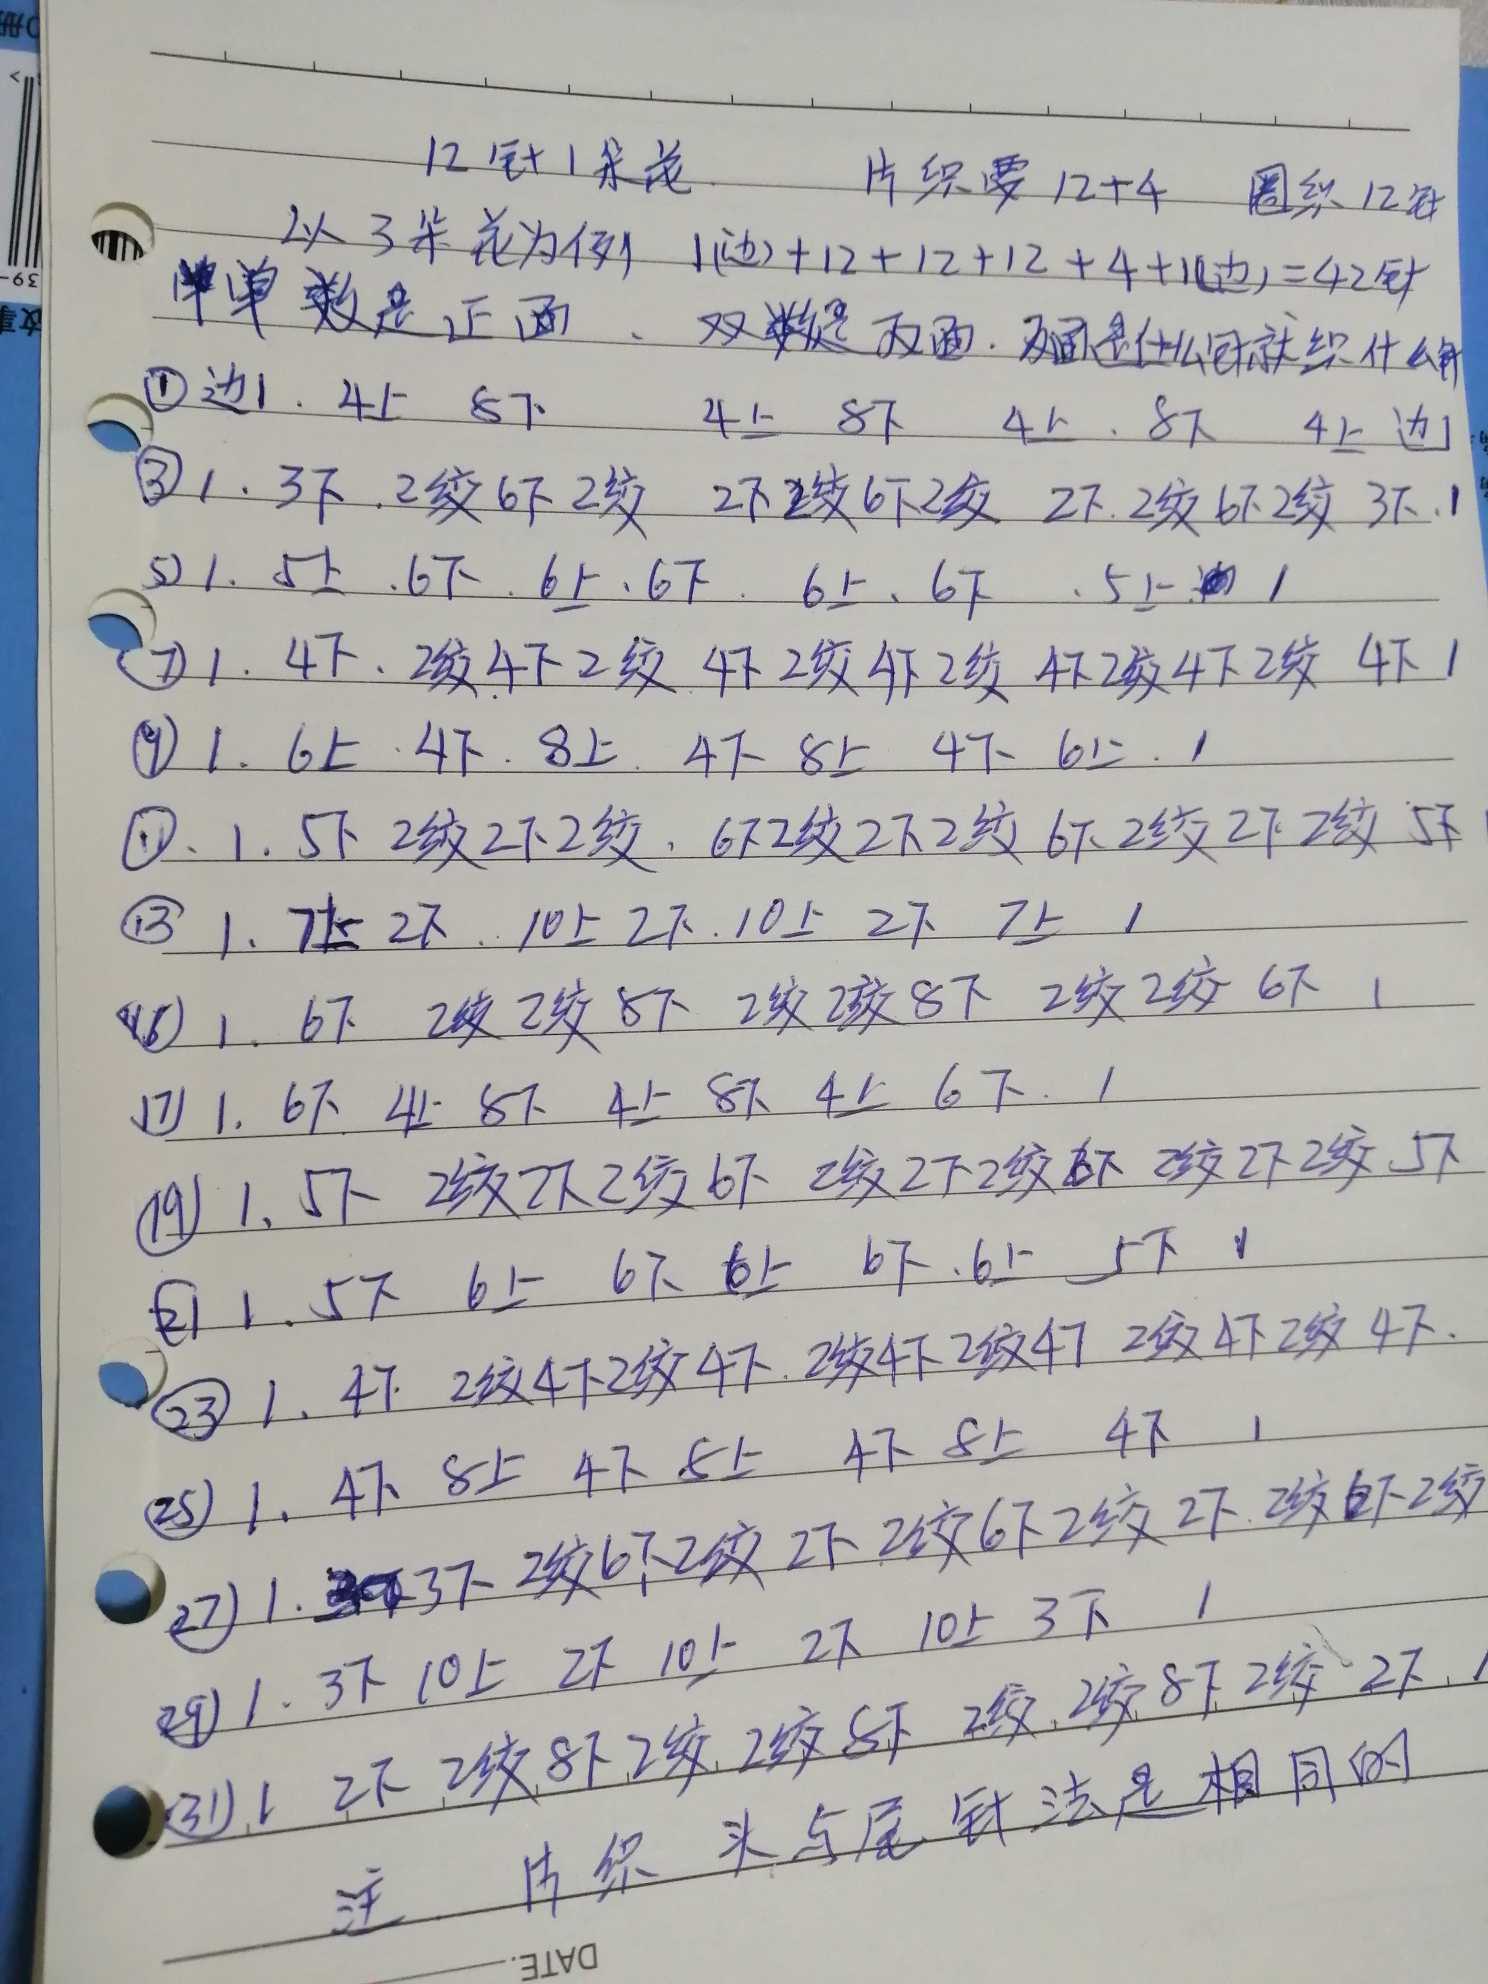 12针1朵花 片织要12+4 圈织12针
以3朵花为例 1(边)+12+12+12+4+1(边)=42针
单数是正面、双数是反面.反面是什么针就织什么针
①边1.4上 8下 4上 8下 4上.8下 4上 边1
③1.3下.2绞6下2绞 2下2绞6下2绞 2下.2绞6下2绞 3下.1
5)1.5上.6下.6上.6下.6上.6下.5上 1
⑦1.4下.2绞4下2绞 4下2绞4下2绞 4下2绞4下2绞 4下1
⑨1.6上.4下.8上.4下 8上 4下 6上.1
⑪.1.5下 2绞2下2绞.6下2绞2下2绞 6下.2绞2下2绞 5下
⑬1.7上 2下.10上 2下.10上 2下 7上 1
15)1.6下 2绞2绞8下 2绞2绞8下 2绞2绞 6下 1
17)1.6下 4上 8下 4上 8下 4上 6下.1
⑲1.5下 2绞2下2绞6下 2绞2下2绞6下 2绞2下2绞 5下
㉑1.5下 6上 6下 6上 6下.6上 5下 1
㉓1.4下 2绞4下2绞4下.2绞4下2绞4下 2绞4下2绞4下.
㉕1.4下 8上 4下 8上 4下 8上 4下 1
㉗1.3下 2绞6下2绞 2下 2绞6下2绞 2下.2绞6下2绞
㉙1.3下 10上 2下 10上 2下 10上 3下 1
㉛1 2下 2绞8下2绞.2绞8下 2绞.2绞8下2绞 2下.1
注 片织 头与尾针法是相同的
DATE.